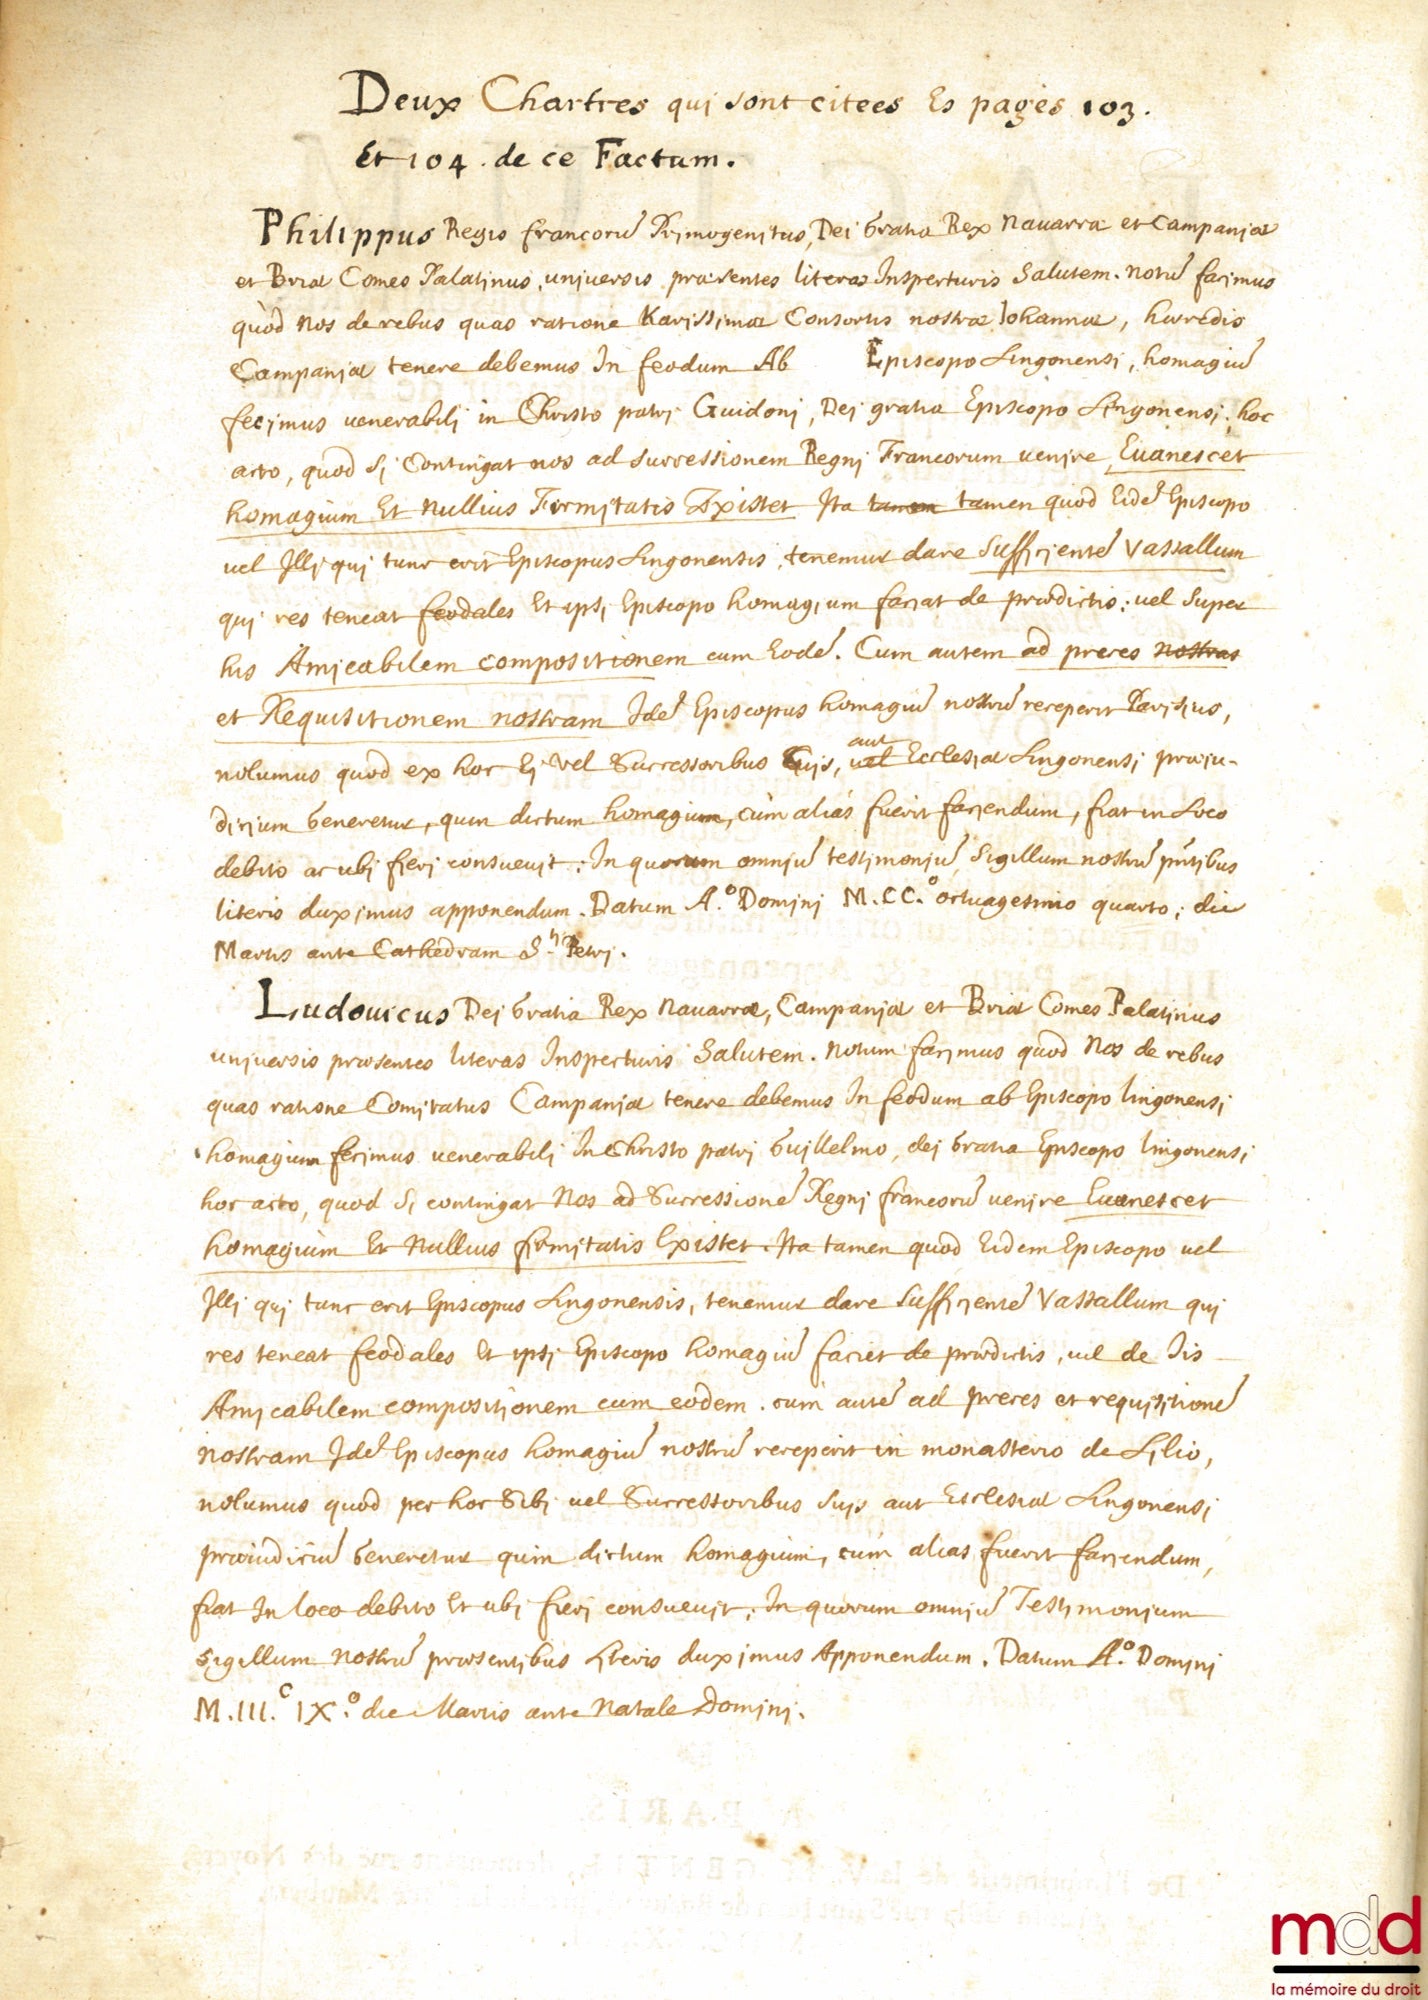 Deux Chartres qui sont citees Es pages 103.
Et 104. de ce Factum.
Philippus Regis francorũ Primogenitus, Dei Gratia Rex Navarræ et Campaniæ
et Briæ Comes Palatinus, universis præsentes literas Inspecturis Salutem. Notũ facimus
quòd Nos de rebus quas ratione Karissimæ Consortis nostræ Iohannæ, hæredis
Campaniæ tenere debemus In feodum Ab Episcopo Lingonensi, homagiũ
fecimus venerabili in Christo patri Guidoni, Dei gratia Episcopo Lingonensi, hoc
acto, quod si Contingat nos ad successionem Regni Francorum venire, Evanescet
homagium Et Nullius Firmitatis Existet Ita tamen tamen quod Eidẽ Episcopo
vel Illi qui tunc erit Episcopus Lingonensis, tenemur dare sufficientẽ Vassallum
qui res teneat feodales Et ipsi Episcopo homagium faciat de prædictis; vel super
his Amicabilem compositionem cum Eodẽ. Cum autem ad preces nostras
et Requisitionem nostram Idẽ Episcopus homagiũ nostrũ receperit Parisius,
nolumus quod ex hoc Ei vel Successoribus Suis, vel aut Ecclesiæ Lingonensi præju-
dicium Generetur, quin dictum homagium, cùm aliàs fuerit faciendum, fiat in Loco
debito ac ubi fieri consuevit; In quorum omniũ testimoniũ, Sigillum nostrũ pñtibus
literis duximus apponendum. Datum A.º Domini M.CC.º octuagesimo quarto; die
Martis ante Cathedram S.ti Petri.
Ludovicus Dei Gratia Rex Navarræ, Campaniæ et Briæ Comes Palatinus
universis præsentes literas Inspecturis Salutem. Notum facimus quod Nos de rebus
quas ratione Comitatus Campaniæ tenere debemus In feodum ab Episcopo lingonensi
homagium fecimus venerabili In Christo patri Guillelmo, dei Gratia Episcopo lingonensi
hoc acto, quod si contingat Nos ad Successionẽ Regni francorũ venire Evanescet
homagium Et Nullius firmitatis Existet. Ita tamen quod Eidem Episcopo vel
Illi qui tunc erit Episcopus Lingonensis, tenemur dare sufficientẽ Vassallum qui
res teneat feodales Et ipsi Episcopo homagiũ faciet de prædictis, vel de Iis
Amicabilem compositionem cum eodem. cum autẽ ad preces et requisitionẽ
nostram Idẽ Episcopus homagiũ nostrũ receperit in monasterio de Lilio,
nolumus quod per hoc Sibi vel Successoribus suis aut Ecclesiæ Lingonensi
præiudiciũ Generetur quin dictum homagium, cùm alias fuerit faciendum,
fiat In loco debito Et ubi fieri consuevit; In quorum omniũ Testimonium
sigillum nostrũ præsentibus Literis duximus Apponendum. Datum A.º Domini
M.III.C IX.º die Martis ante Natale Domini.
mdd
la mémoire du droit